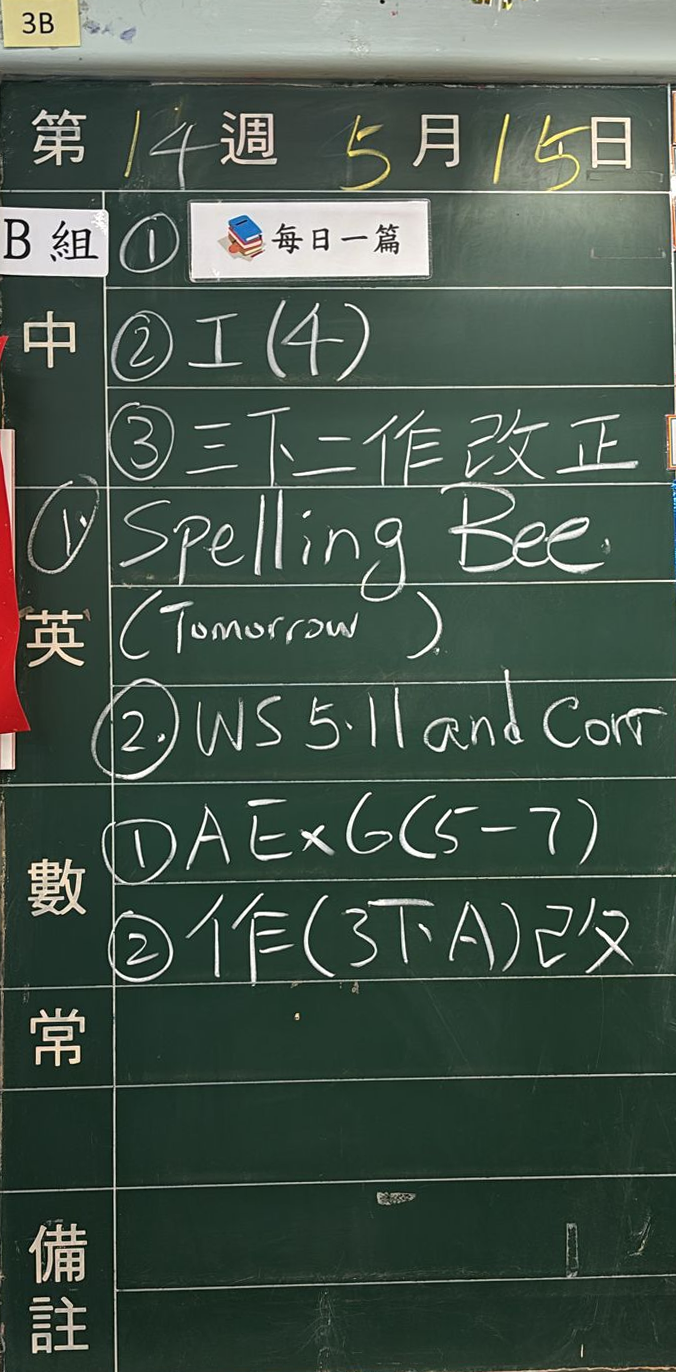 3B
第14週 5月15日
B組 ① 每日一篇
中 ② 工(4)
③ 三下二作改正
① Spelling Bee.
英 (Tomorrow)
② WS 5.11 and Corr
① A Ex 6(5-7)
數 ② 作(3下A)改
常
備註